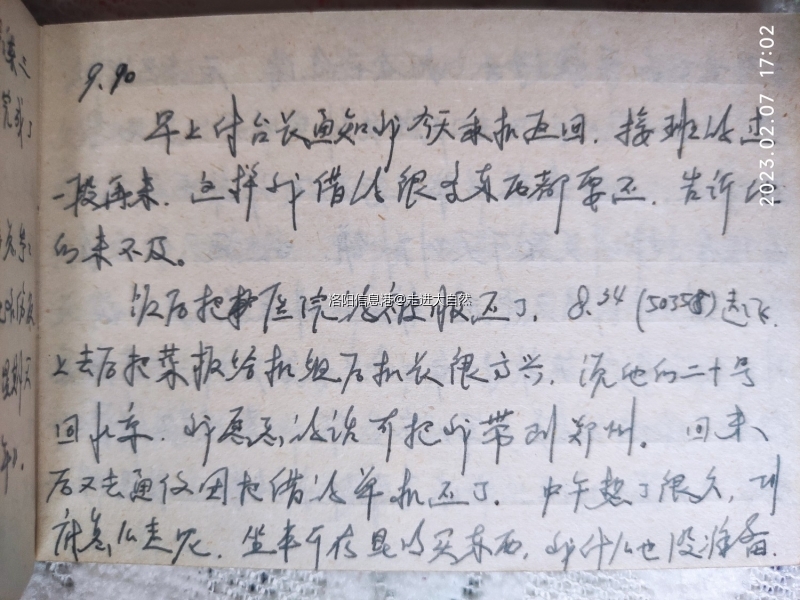 9.90
早上付台长通知我今天乘机返回，接班的过
一段再来。这样我借的很多东西都要还，告诉
的来不及。
饭后把医院的被服还了。8.34 (50358) 起飞
上去后把菜报给机组后机长很高兴，说他们二十号
回北京，我愿意的话可把我带到郑州。回来
后又去通仪团把借的单机还了。中午想了很久，到
底怎么走呢。坐车可在昆明买东西，我什么也没准备。
洛阳信息港@走进大自然
2023.02.07 17:02